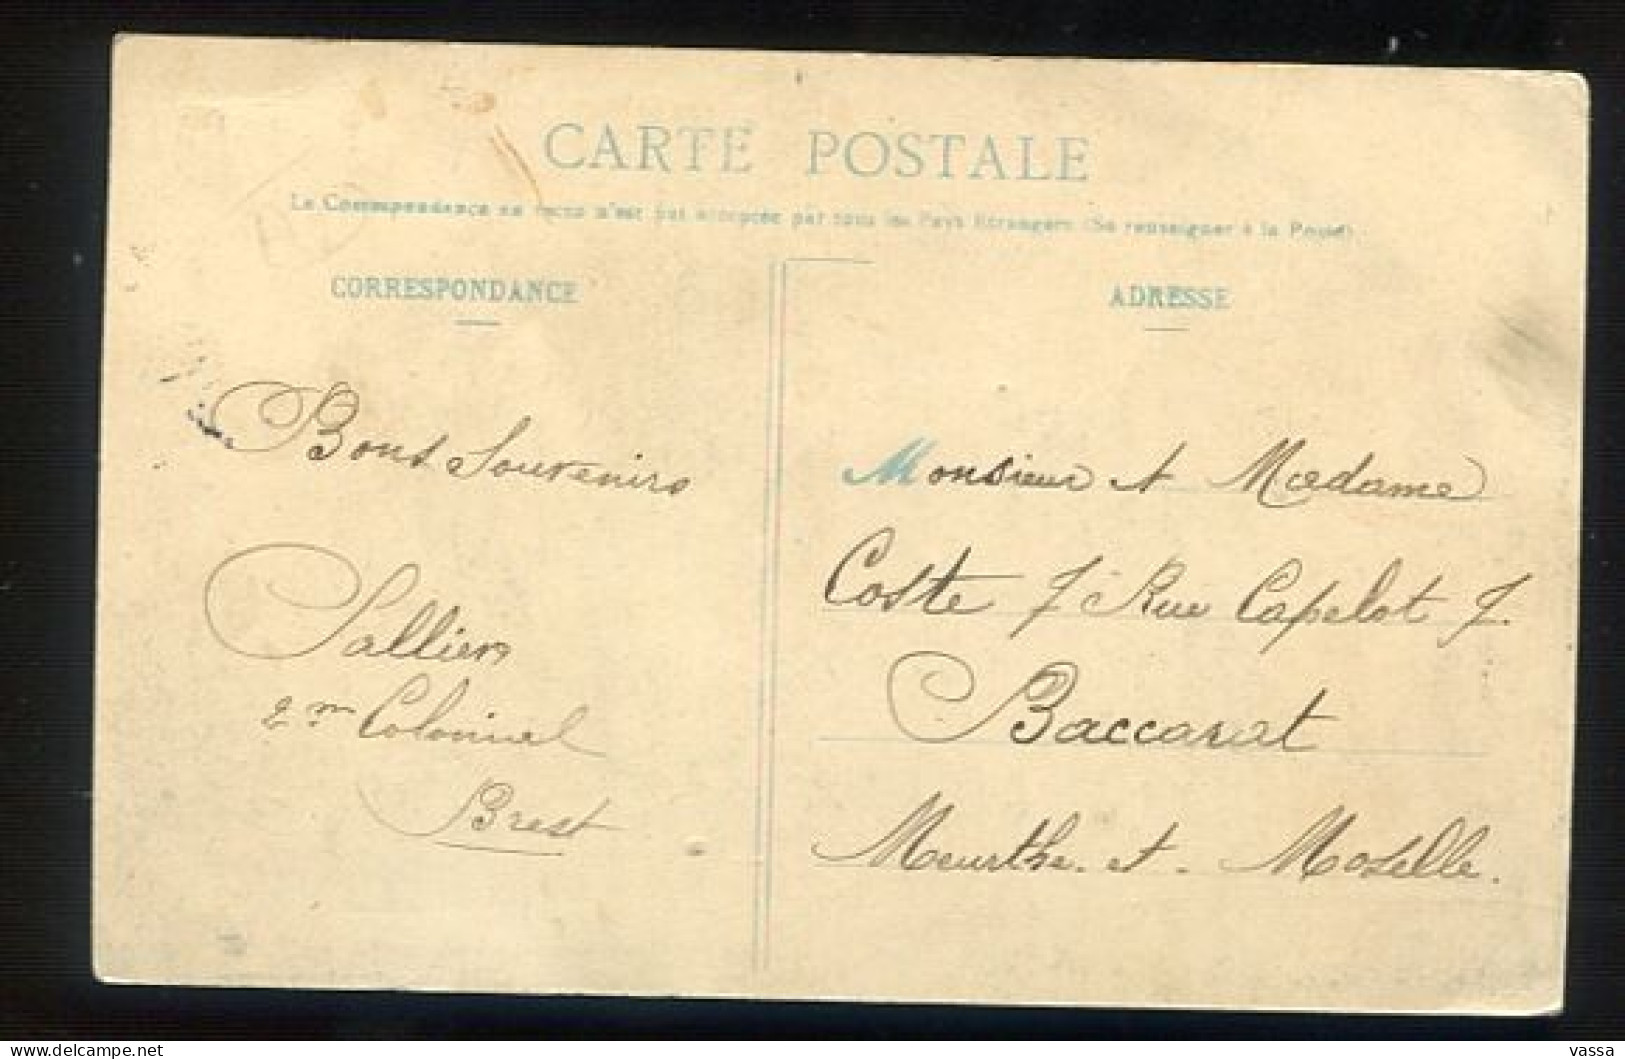 CARTE POSTALE
La Correspondance au recto n'est pas acceptée par tous les Pays Etrangers (Se renseigner à la Poste)
CORRESPONDANCE
Bons Souvenirs
Sallier
2me Colonial
Brest
ADRESSE
Monsieur et Madame
Coste 7 Rue Capelot 7.
Baccarat
Meurthe. et. Moselle.
delcampe.net
vassa